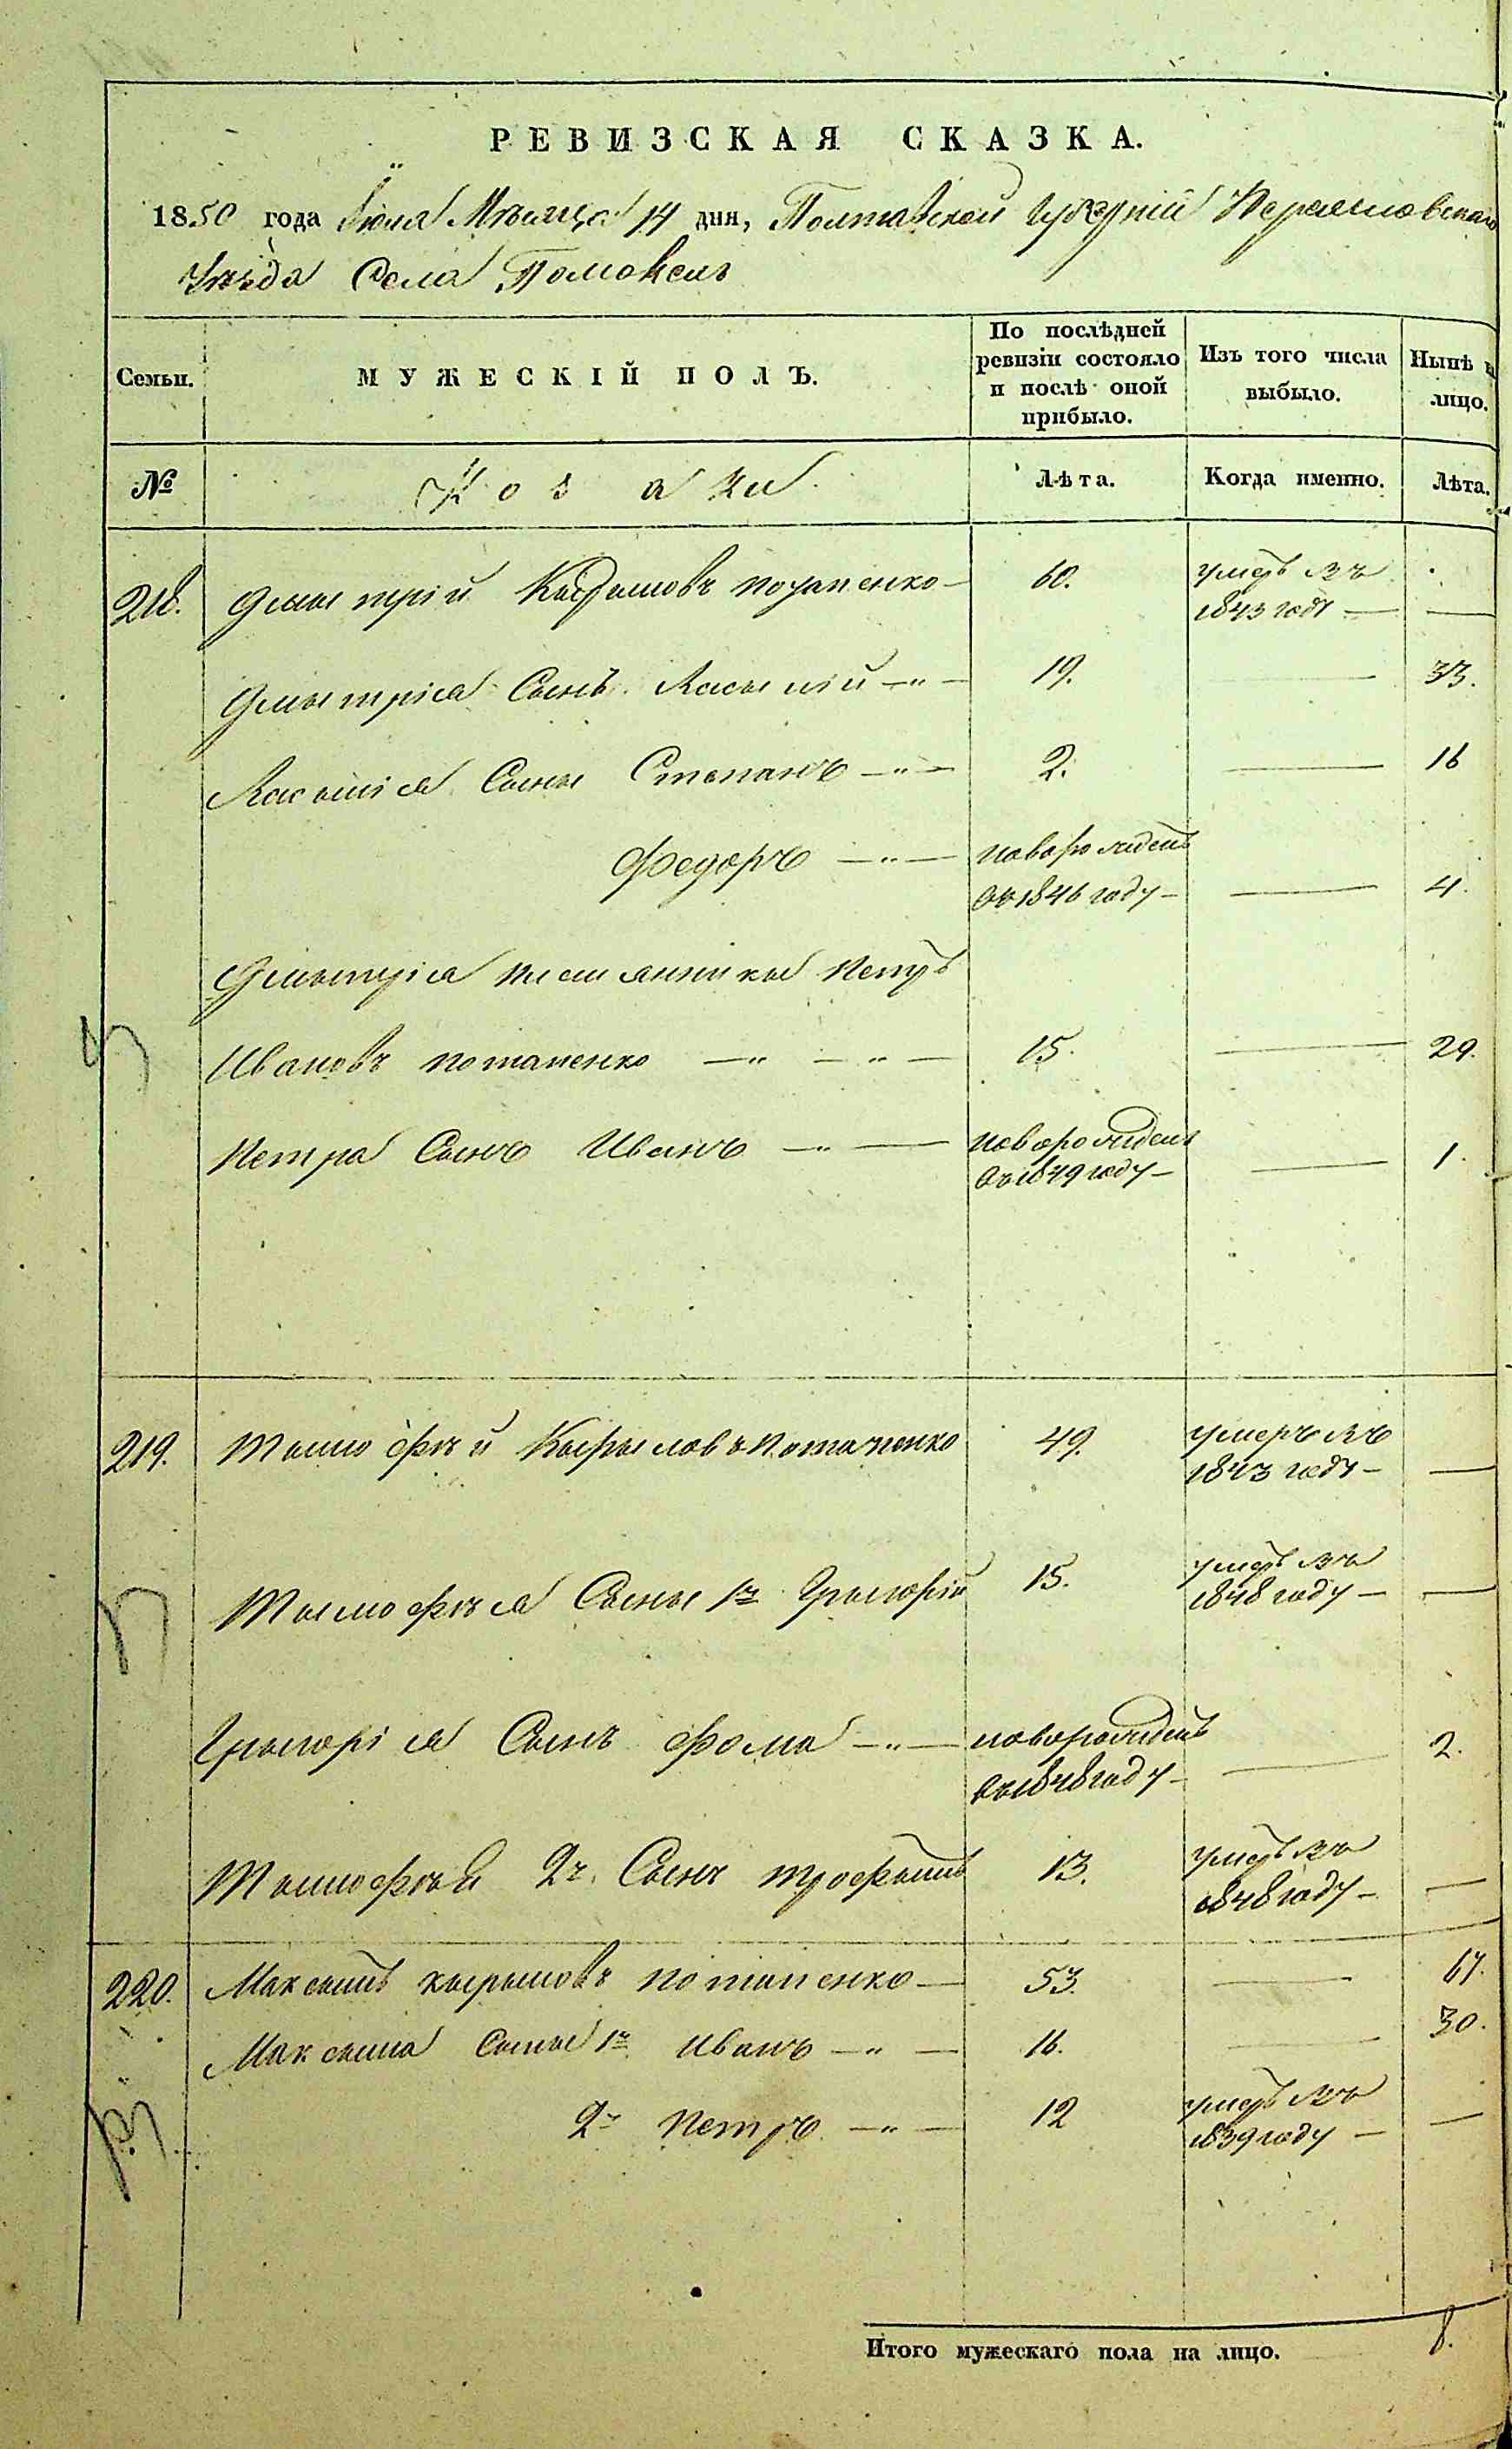 РЕВИЗСКАЯ СКАЗКА.
1850 года Іюля Мѣсяца 14 дня, Полтавской губерніи Переясловскаго
Уѣзда Села Помоклей
Семьи. МУЖЕСКІЙ ПОЛЪ. По послѣдней ревизіи состояло и послѣ оной прибыло. Изъ того числа выбыло. Нынѣ на лицо.
№ Козаки. Лѣта. Когда именно. Лѣта.
218. Дмытрій Кырыловъ Потапенко — 60. умеръ въ
1843 году — —
Дмытрія Сынъ Васылій —"— 19. — 33.
Васылія Сыны Степанъ —"— 2. — 16
Федоръ —"— новорожденъ
въ 1846 году — — 4.
Дмытрія племянныкъ Петръ
Ивановъ Потапенко —"—"— 15. — 29.
Петра Сынъ Иванъ —"— новорожденъ
въ 1849 году — — 1.
219. Тымофѣй Кырыловъ Потапенко 49. умеръ въ
1843 году — —
Тымофѣя Сыны 1й Грыгорій 15. умеръ въ
1848 году — —
Грыгорія Сынъ Фома —"— новорожденъ
въ 1848 году — — 2.
Тымофѣя 2й Сынъ Трофымъ 13. умеръ въ
1848 году — —
220. Максымъ Кырыловъ Потапенко — 53. — 67.
Максыма Сыны 1й Иванъ —"— 16. — 30.
2й Петръ —"— 12 умеръ въ
1839 году — —
Итого мужескаго пола на лицо. 8.